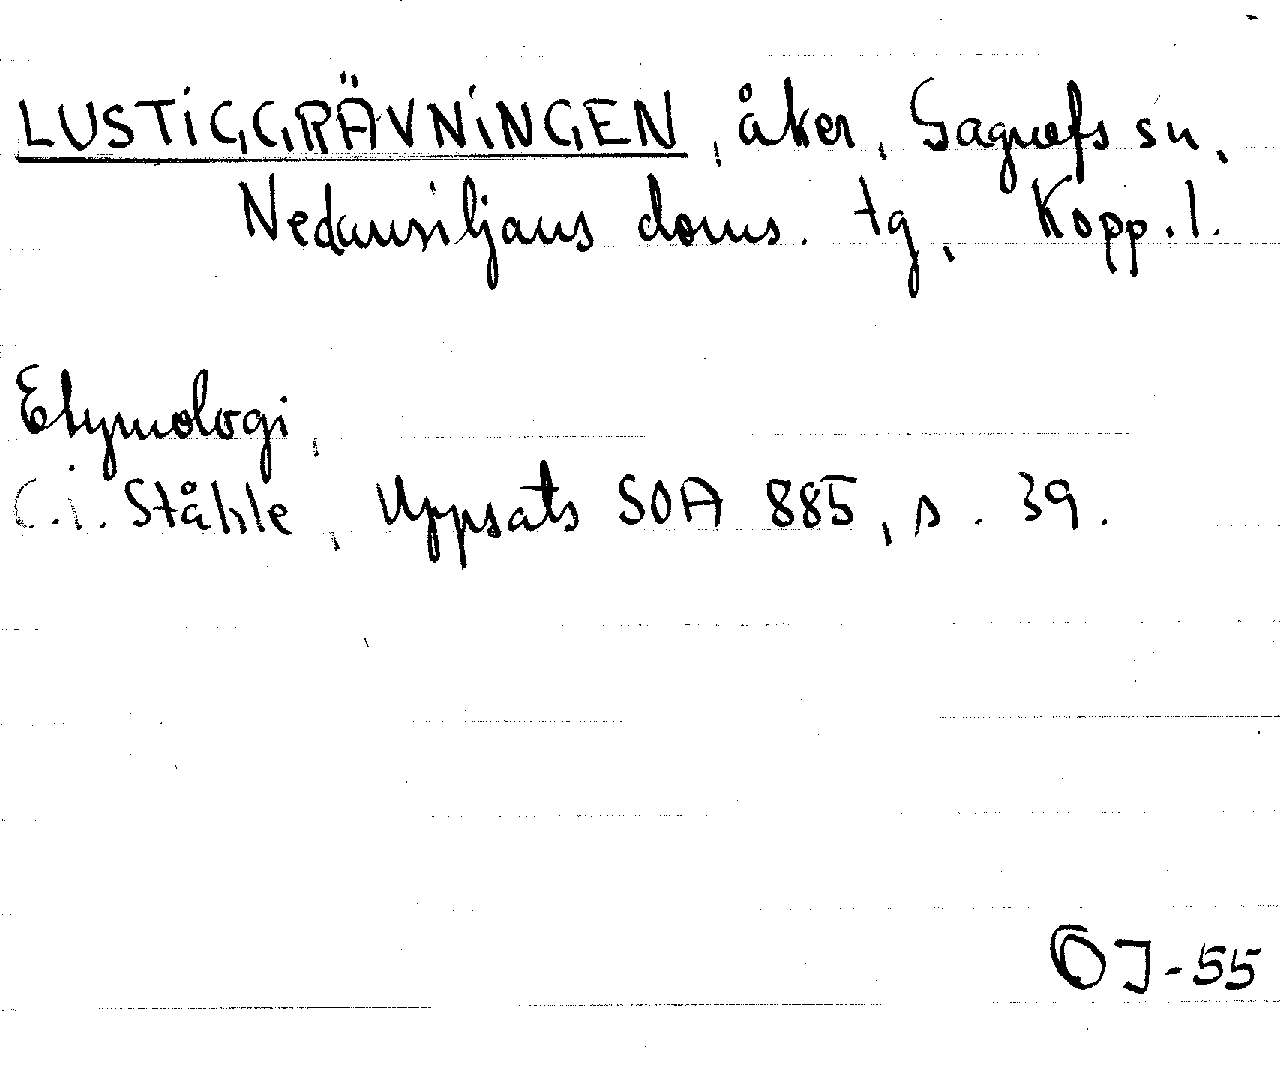 LUSTIGGRÄVNINGEN, åker, Gagnefs sn,
Nedansiljans doms. tg, Kopp. l.
Etymologi,
C.i. Ståhle, Uppsats SOA 885, s. 39.
OJ-55